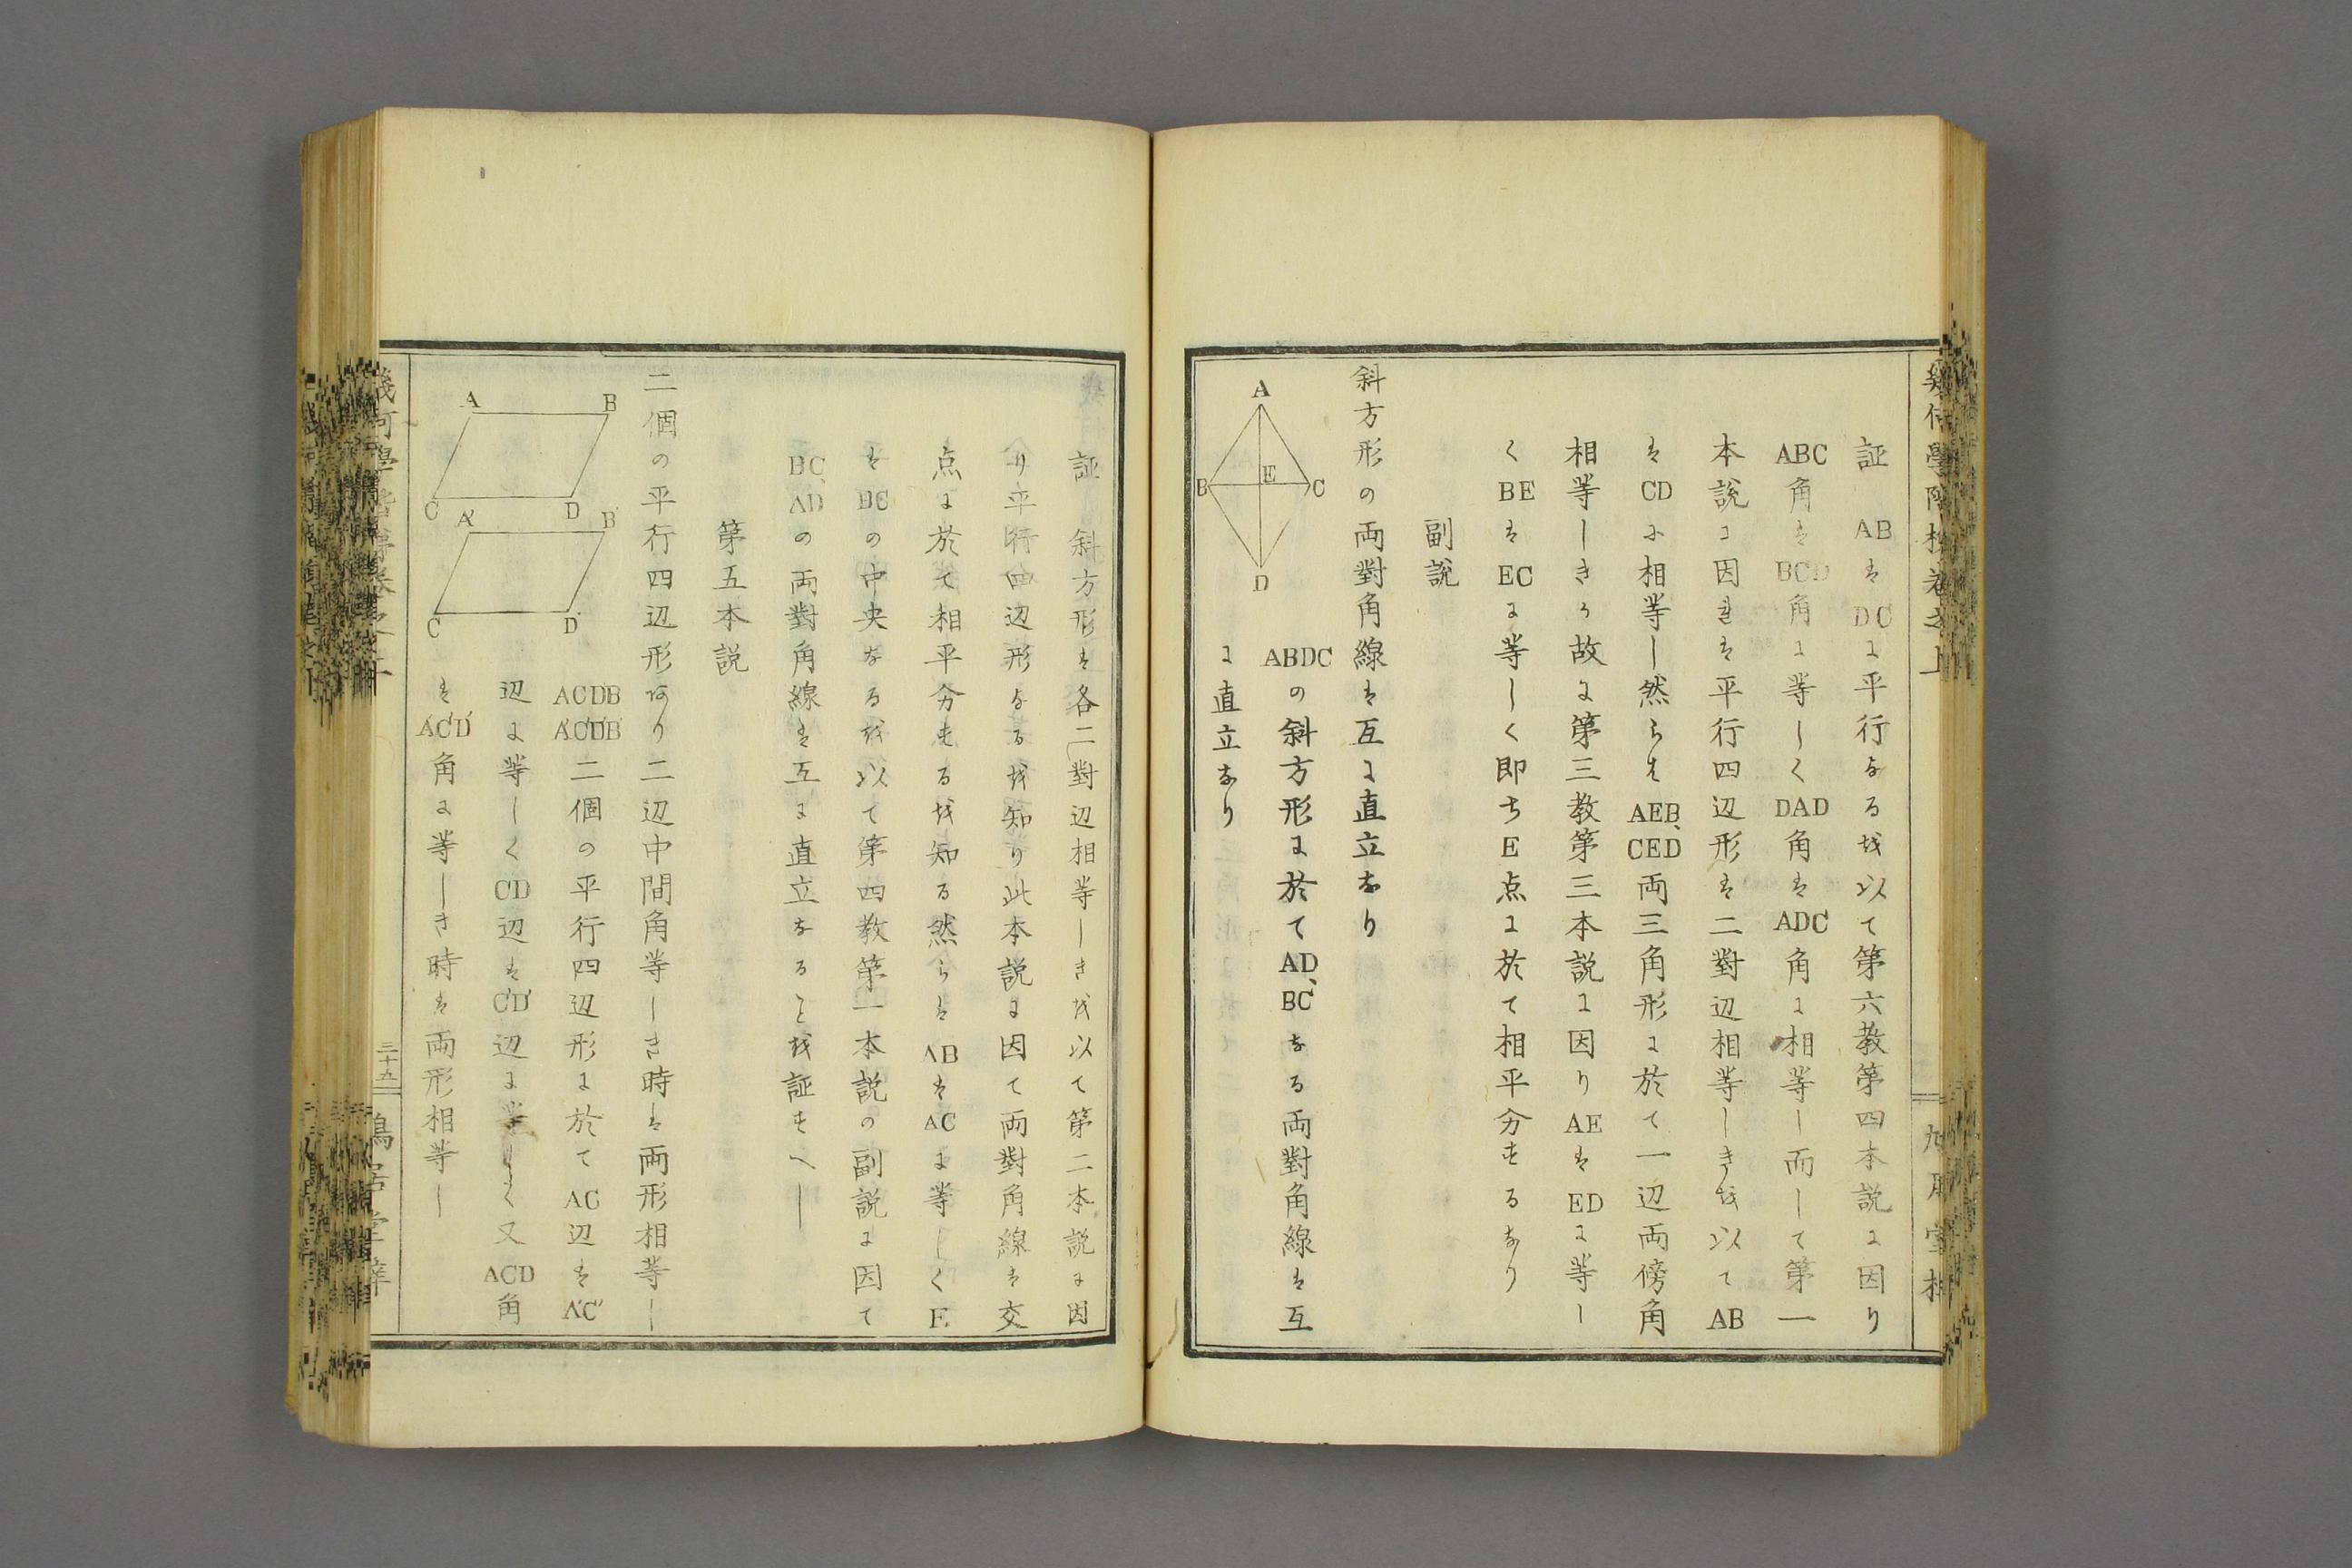 証 ABはDCに平行なるを以て第六教第四本説に因り
ABC角はBCD角に等しくDAD角はADC角に相等し而して第一
本説に因れは平行四辺形は二對辺相等しきを以てAB
はCDに相等し然らはAEB、CED両三角形に於て一辺両傍角
相等しきか故に第三教第三本説に因りAEはEDに等し
くBEはECに等しく即ちE点に於て相平分するなり
副説
斜方形の両對角線は互に直立なり
A
B
E
C
D
ABDCの斜方形に於てAD、BCなる両對角線は互
に直立なり
証 斜方形は各二對辺相等しきを以て第二本説に因
り平行四辺形なるを知り此本説に因て両對角線は交
点に於て相平分するを知る然らはABはACに等しくE
はBCの中央なるを以て第四教第一本説の副説に因て
BC、ADの両對角線は互に直立なるを証すへし
第五本説
二個の平行四辺形何り二辺中間角等しき時は両形相等し
A
B
C
D
A'
B'
C'
D'
ACDB
A'C'D'B'二個の平行四辺形に於てAC辺はA'C'
辺に等しくCD辺はC'D'辺に等しく又ACD角
はA'C'D'角に等しき時は両形相等し
三十五